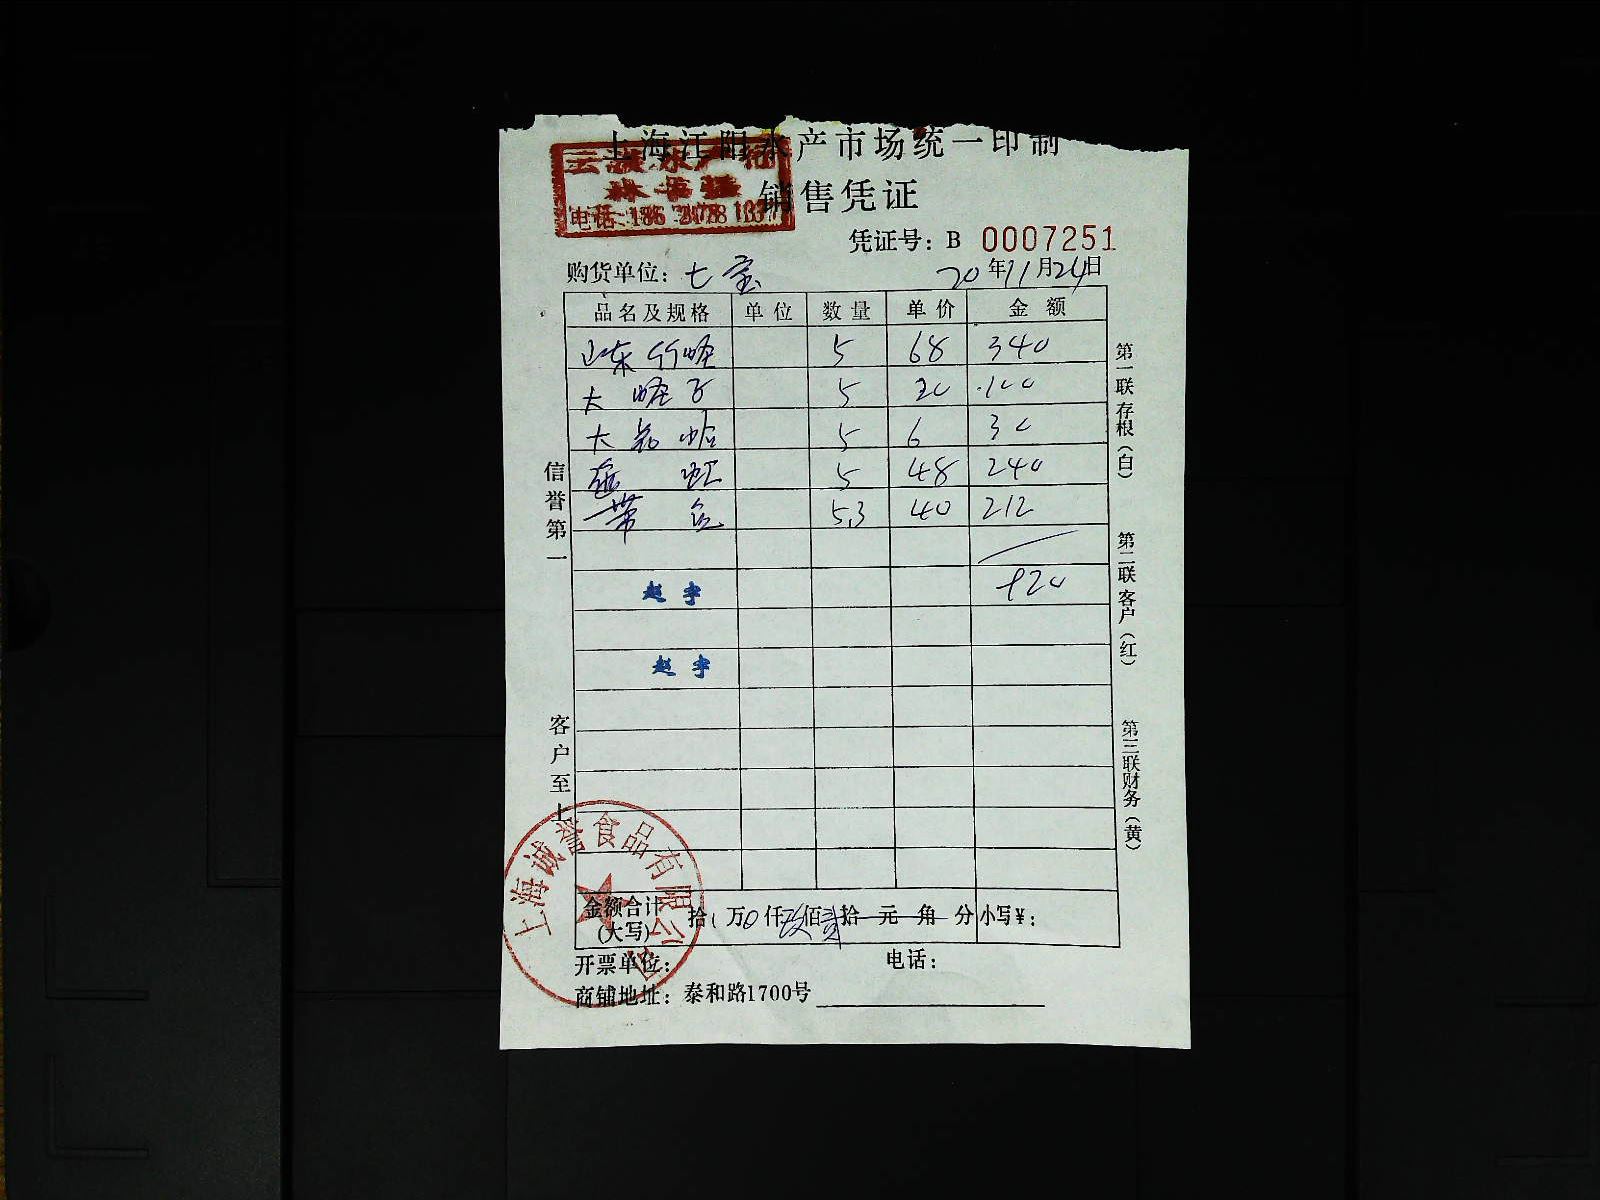 上海江阳水产市场统一印制
销售凭证
电话:
凭证号: B 0007251
购货单位: 七宝
20年11月24日
品名及规格 单位 数量 单价 金额
山东竹蛏 5 68 340
大蛏子 5 20 100
大花蛤 5 6 30
5 48 240
带鱼 5.3 40 212
920
赵宇
赵宇
信誉第一
客户至上
第一联存根(白)
第二联客户(红)
第三联财务(黄)
上海诚誉食品有限公司
金额合计(大写) 拾 万0仟玖佰贰拾元角分 小写¥:
开票单位: 电话:
商铺地址: 泰和路1700号